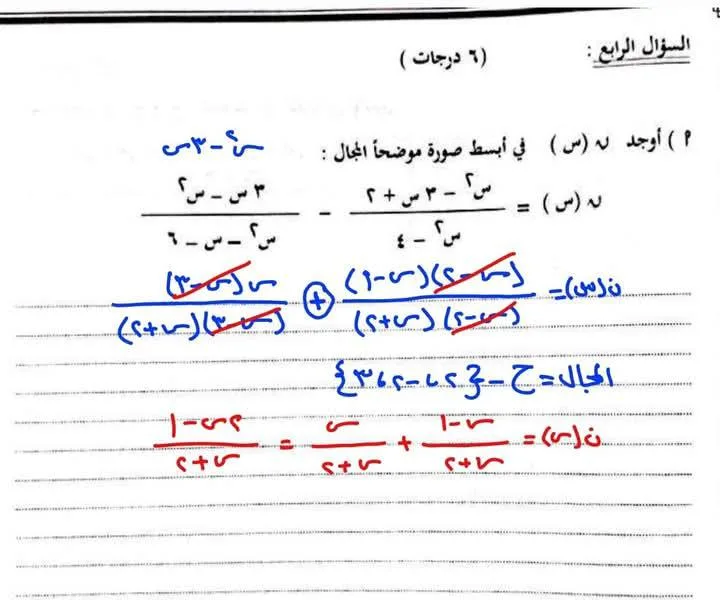 السؤال الرابع : (٦ درجات )
س٢ - ٣س
٩ ) أوجد ن (س) في أبسط صورة موضحاً المجال :
ن (س) = (س٢ - ٣ س + ٢) / (س٢ - ٤) - (٣ س - س٢) / (س٢ - س - ٦)
ن(س) = (س-٢)(س-١) / (س-٢)(س+٢) + س(س-٣) / (س-٣)(س+٢)
المجال = ح - {٢، -٢، ٣}
ن(س) = (س-١) / (س+٢) + س / (س+٢) = (٢س-١) / (س+٢)